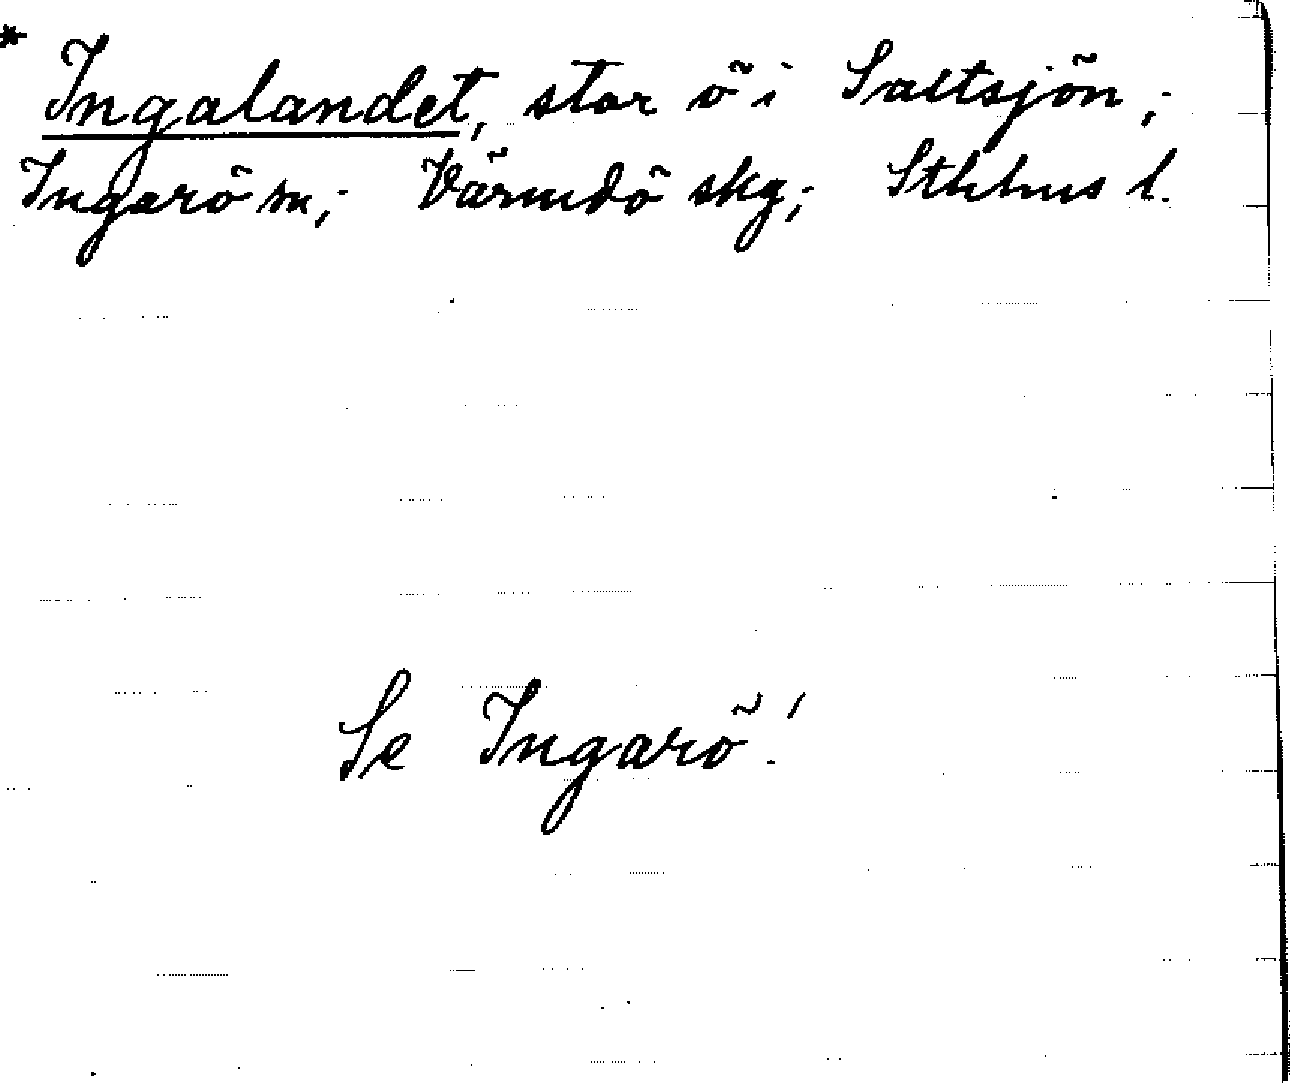 * Ingalandet, stor ö i Saltsjön,-
Ingarö sn,- Värmdö skg,- Sthlms l.
Se Ingarö!